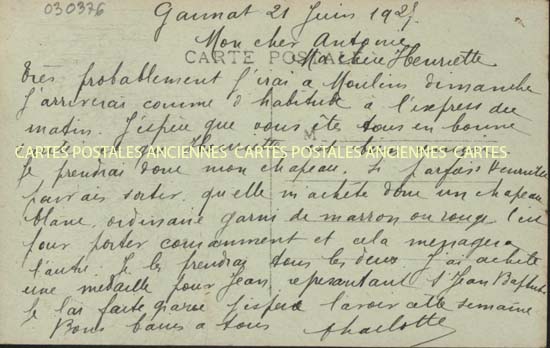 030376
Gannat 21 Juin 192
Mon cher Antoine
CARTE POSTALE
Ma chère Henriette
Très probablement j'irai a Moulins dimanche
J'arriverai comme d'habitude a l'express du
matin. J'espère que vous êtes tous en bonne
CARTES POSTALES ANCIENNES CARTES POSTALES ANCIENNES CARTES POSTALES ANCIENNES
Je prendrai donc mon chapeau. Si parfois Henriette
pouvais sortir, qu'elle m'achète donc un chapeau
blanc, ordinaire garni de marron ou rouge c'est
pour porter couramment et cela menagera
l'autre. Je les prendrai tous les deux J'ai acheté
une medaille pour Jean representant St Jean Baptiste
Je l'ai faite graver j'espère l'avoir cette semaine
Bons baisers a tous Charlotte